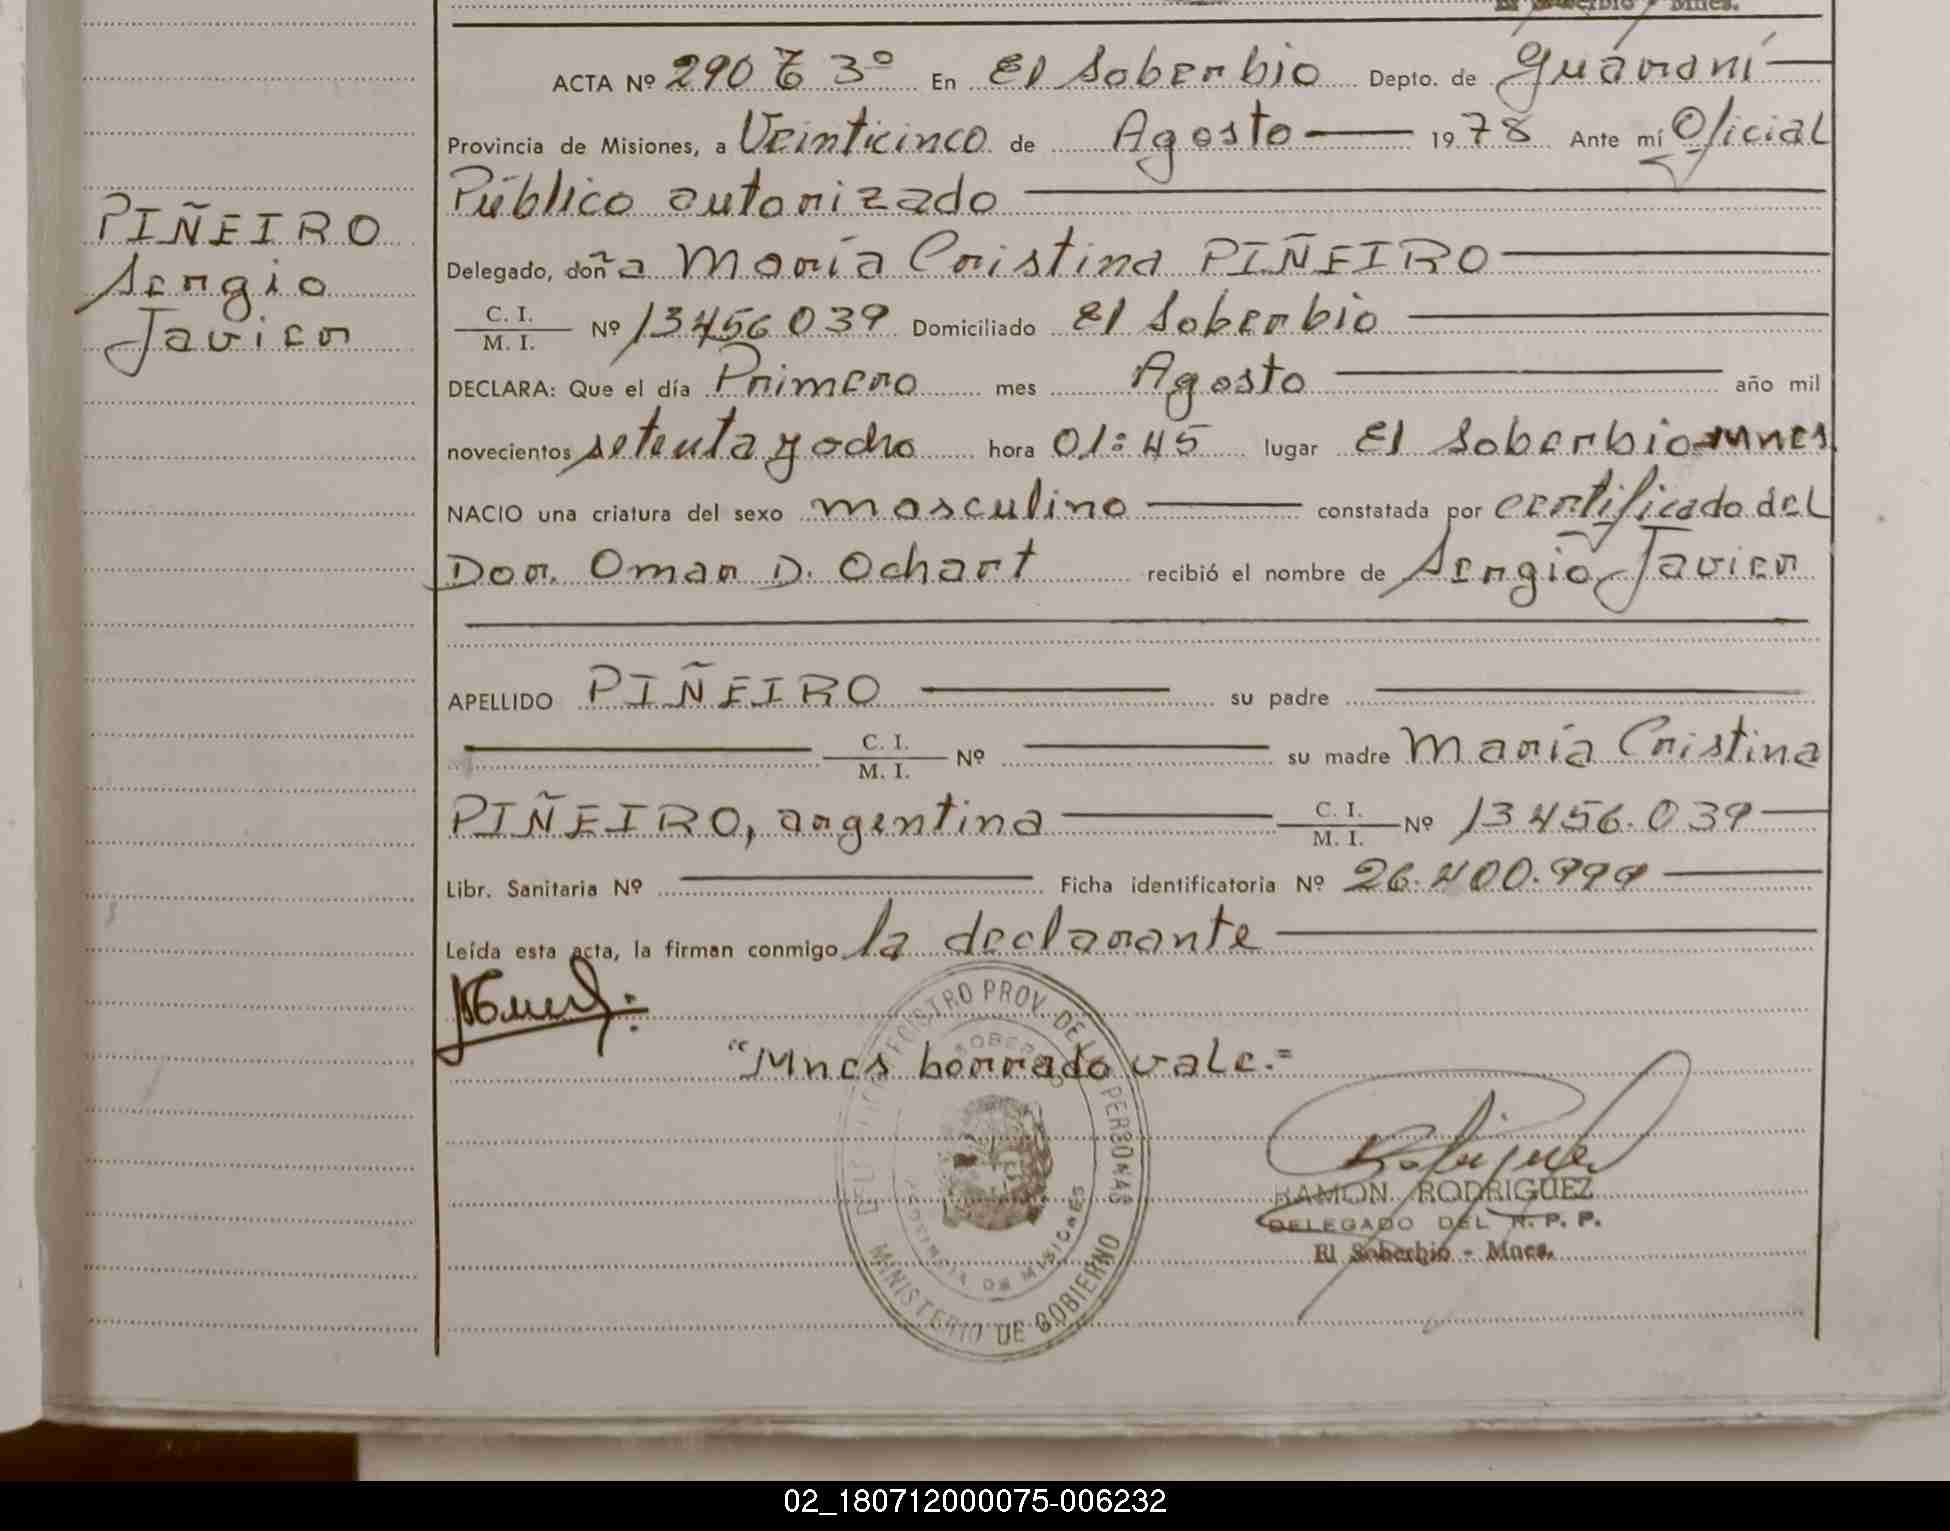 El Soberbio - Mnes.
ACTA Nº 290 T 3º En El Soberbio Depto. de Guaraní
Provincia de Misiones, a Veinticinco de Agosto 1978 Ante mí Oficial
Público autorizado
PIÑEIRO
Sergio
Javier
Delegado, doña María Cristina PIÑEIRO
C. I.
M. I. Nº 13456039 Domiciliado El Soberbio
DECLARA: Que el día Primero mes Agosto año mil
novecientos setenta y ocho hora 01:45 lugar El Soberbio Mnes
NACIO una criatura del sexo masculino constatada por certificado del
Dor. Omar D. Ochart recibió el nombre de Sergio Javier
APELLIDO PIÑEIRO su padre
C. I.
M. I. Nº su madre María Cristina
PIÑEIRO, argentina C. I.
M. I. Nº 13456.039
Libr. Sanitaria Nº Ficha identificatoria Nº 26.400.999
Leída esta acta, la firman conmigo la declarante
"Mnes borrado vale.=
REGISTRO PROV. DE LAS PERSONAS
SOBERBIO
PROVINCIA DE MISIONES
MINISTERIO DE GOBIERNO
RAMON RODRIGUEZ
DELEGADO DEL R. P. P.
El Soberbio - Mnes.
02_180712000075-006232